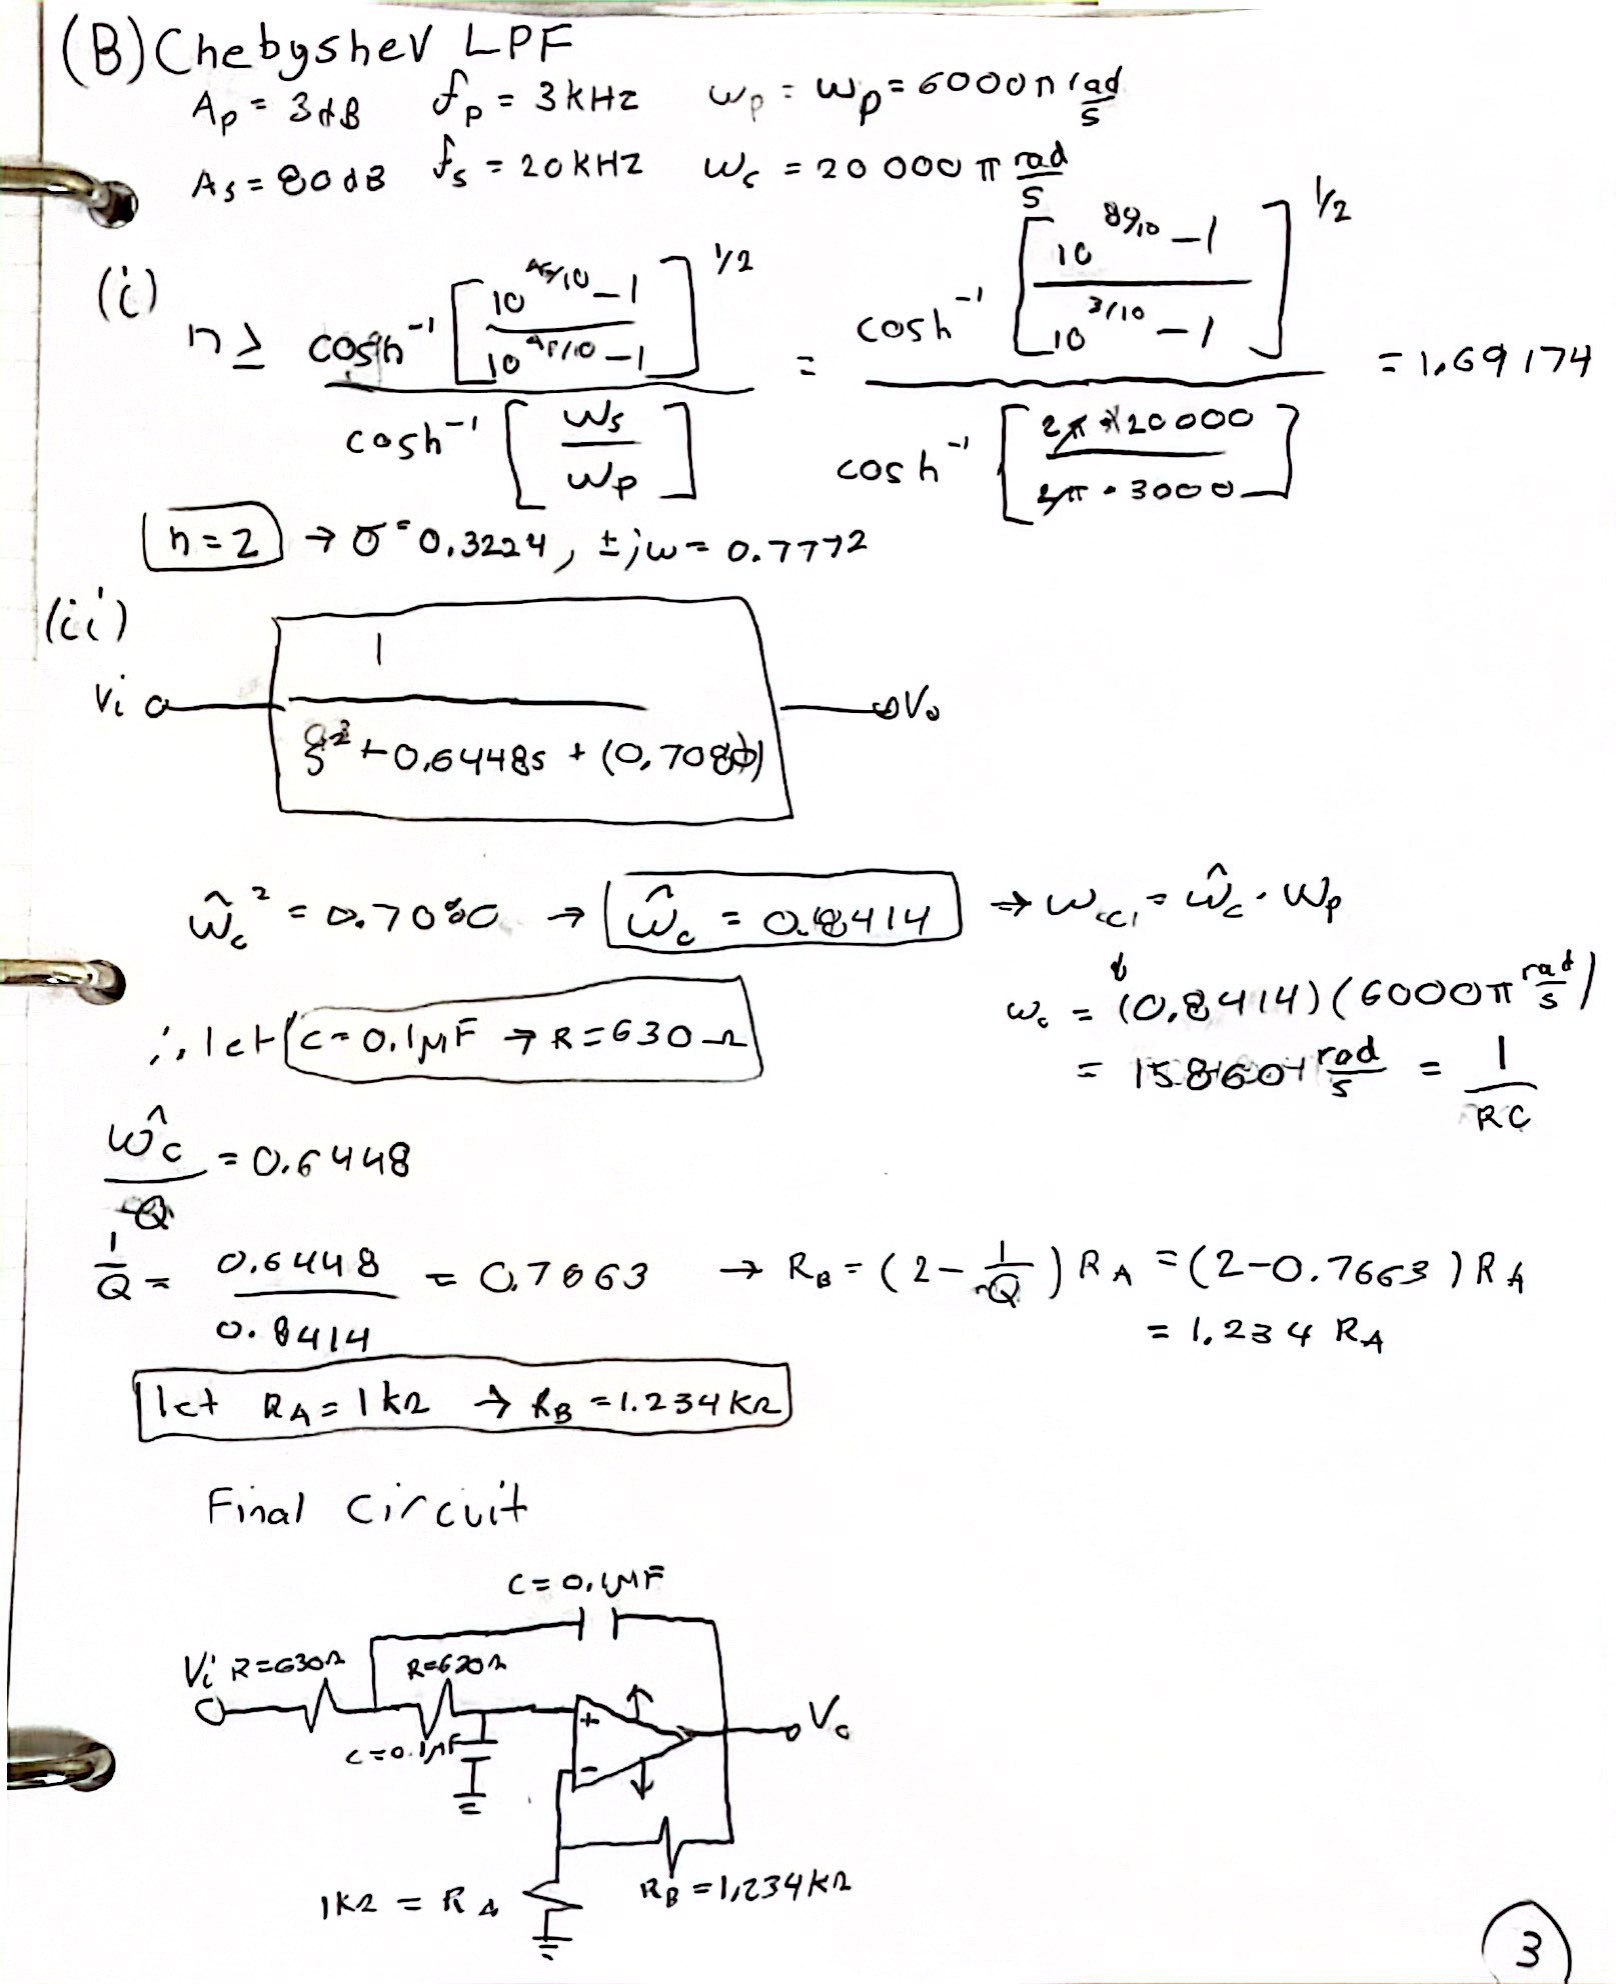 (B) Chebyshev LPF
Ap = 3dB fp = 3kHz ωp = ωp = 6000π rad/s
As = 80dB fs = 20kHz ωs = 20 000 π rad/s
(i) n ≥ cosh⁻¹ [ (10^(As/10) - 1) / (10^(Ap/10) - 1) ]^1/2 / cosh⁻¹ [ ωs / ωp ] = cosh⁻¹ [ (10^(80/10) - 1) / (10^(3/10) - 1) ]^1/2 / cosh⁻¹ [ 2π * 20000 / 2π · 3000 ] = 1.69174
n = 2 → σ = 0.3224, ±jω = 0.7772
(ii)
Vi 1 / (s² + 0.6448s + (0.7080)) Vo
ω̂c² = 0.7080 → ω̂c = 0.8414 → ωc1 = ω̂c · ωp
ωc = (0.8414)(6000π rad/s)
∴ let C = 0.1μF → R = 630Ω
= 15860 rad/s = 1/RC
ω̂c / Q = 0.6448
1/Q = 0.6448 / 0.8414 = 0.7663 → RB = (2 - 1/Q) RA = (2 - 0.7663) RA
= 1.234 RA
let RA = 1kΩ → RB = 1.234kΩ
Final Circuit
C = 0.1MF
Vi R=630Ω R=630Ω
+ Vo
C=0.1μF
-
1kΩ = RA RB = 1,234kΩ
3